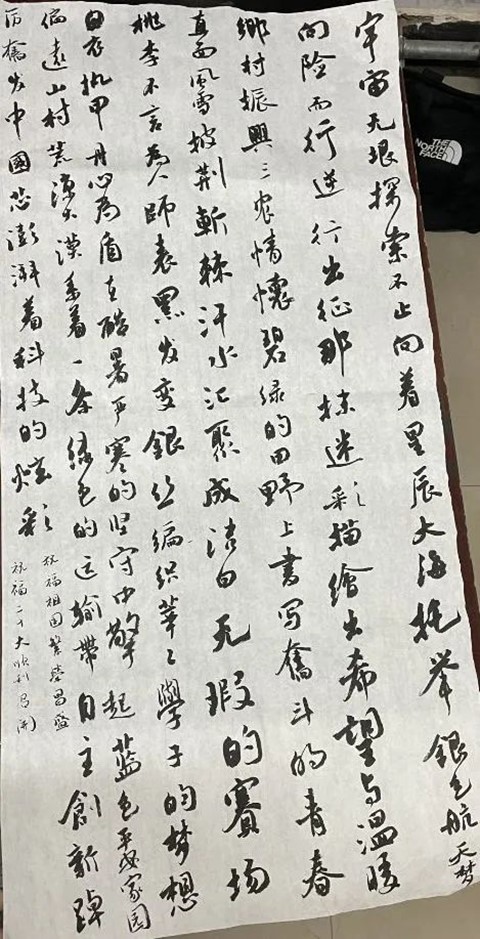 宇宙无垠探索不止向着星辰大海托举银色航天梦
向险而行逆行出征那抹迷彩描绘出希望与温暖
鄉村振興三农情懷碧绿的田野上書写奮斗的青春
直面风雪披荆斬棘汗水汇聚成洁白无瑕的賽场
桃李不言為人師表黑发变銀丝编织莘々學子的梦想
白衣执甲丹心為盾在酷暑严寒的坚守中擎起蓝色平安家园
偏遠山村荒凉大漠系着一条绿色的运输带自主創新踔
厉奮发中國芯澎湃着科技的炫彩
祝福祖国繁荣昌盛
祝福二十大顺利召開
THE
NORTH
FACE